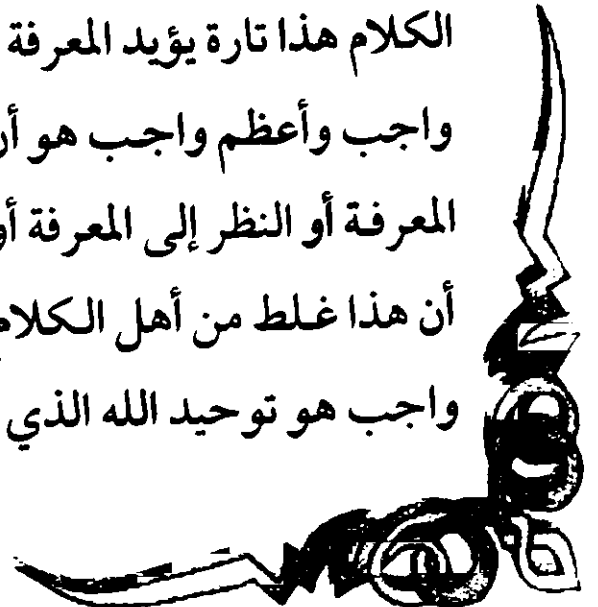 الكلام هذا تارة يؤيد المعرفة
واجب وأعظم واجب هو أن
المعرفة أو النظر إلى المعرفة أو
أن هذا غلط من أهل الكلام
واجب هو توحيد الله الذي